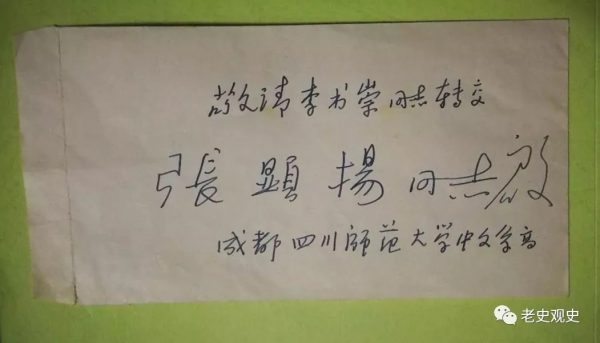 敬请李书崇同志转交
張顯揚同志啟
成都四川師范大学中文系高
老史观史